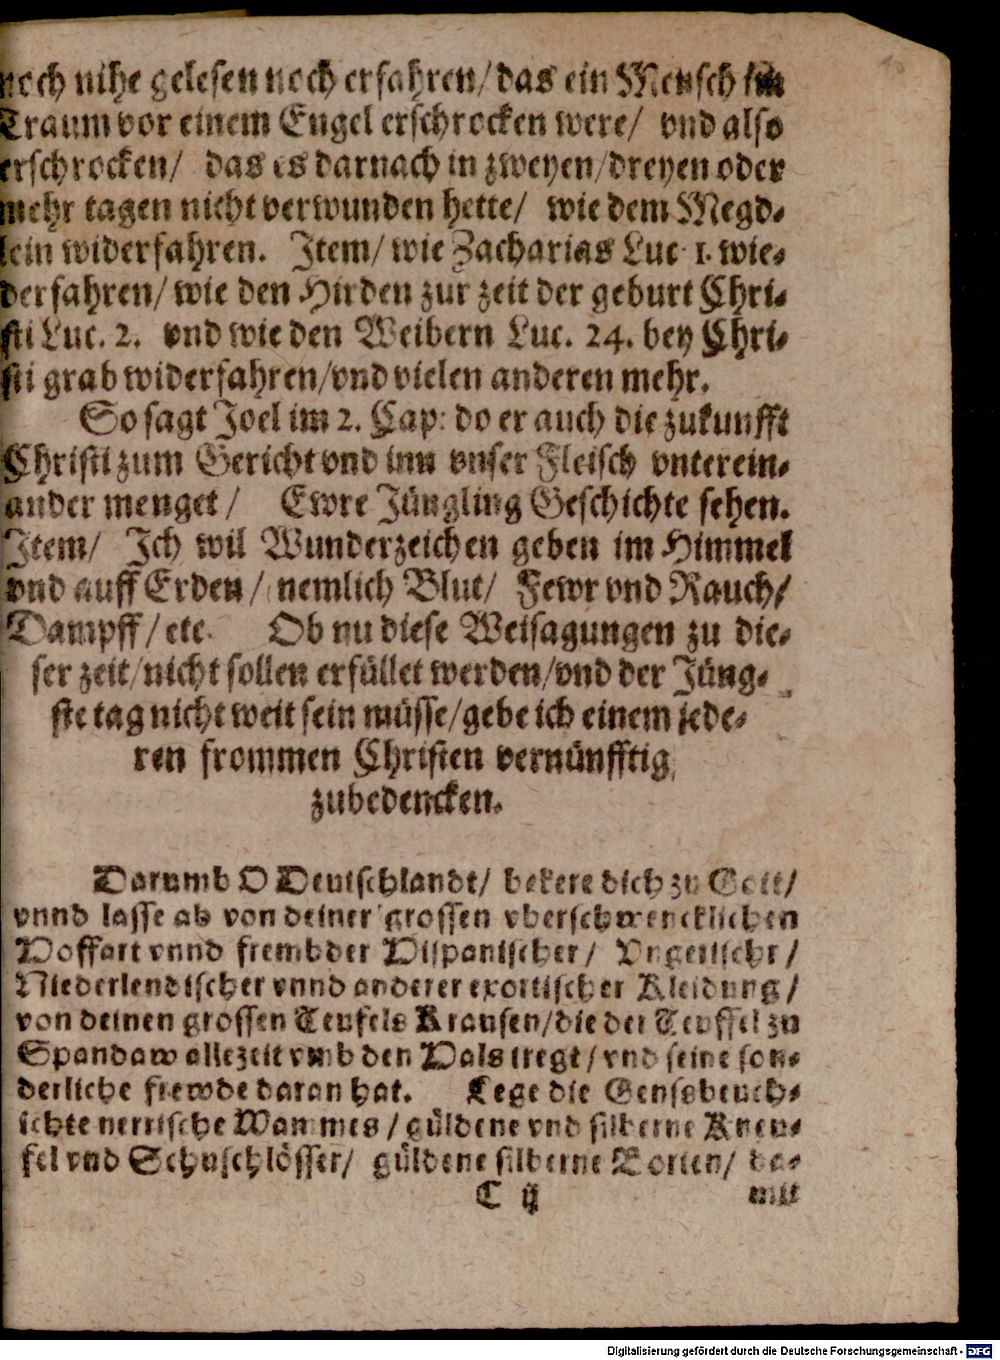 noch nihe gelesen noch erfahren/ das ein Mensch im
Traum vor einem Engel erschrocken were/ vnd also
erschrocken/ das es darnach in zweyen/dreyen oder
mehr tagen nicht verwunden hette/ wie dem Megd-
lein widerfahren. Item/ wie Zacharias Luc 1. wie-
derfahren/ wie den Hirden zur zeit der geburt Chri-
sti Luc. 2. vnd wie den Weibern Luc. 24. bey Chri-
sti grab widerfahren/vnd vielen anderen mehr.
So sagt Joel im 2. Cap: do er auch die zukunfft
Christi zum Gericht vnd inn vnser Fleisch vnterein-
ander menget/ Ewre Jüngling Geschichte sehen.
Item/ Ich wil Wunderzeichen geben im Himmel
vnd auff Erden/ nemlich Blut/ Fewr vnd Rauch/
Dampff/ etc. Ob nu diese Weisagungen zu die-
ser zeit/nicht sollen erfüllet werden/vnd der Jüng-
ste tag nicht weit sein müsse/gebe ich einem jede-
ren frommen Christen vernünfftig
zubedencken.
Darumb O Deutschlandt/ bekere dich zu Gott/
vnnd lasse ab von deiner grossen vberschwencklichen
Hoffart vnnd frembder Hispanischer/ Vngerischr/
Niederlendischer vnnd anderer exottischer Kleidung/
von deinen grossen Teufels Krausen/die der Teuffel zu
Spandaw allezeit vmb den Hals tregt/ vnd seine son-
derliche frewde daran hat. Lege die Gensebeuch-
ichte nerrische Wammes/ güldene vnd silberne Kneu-
fel vnd Schuschlösser/ güldene silberne Borten/ da-
C ij mit
Digitalisierung gefördert durch die Deutsche Forschungsgemeinschaft - DFG